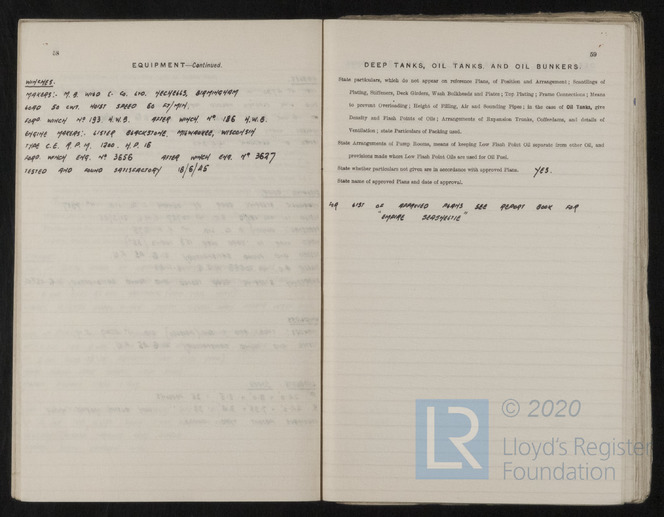 58
EQUIPMENT—Continued.
WINCHES.
MAKERS:- M. B. WILD & Co. LTD. NECHELLS, BIRMINGHAM
LOAD 30 CWT. HOIST SPEED 80 FT/MIN.
FORD WINCH Nº 193 H.W.B. AFTER WINCH Nº 186 H.W.B.
ENGINE MAKERS:- LISTER BLACKSTONE, MILWAUKEE, WISCONSIN
TYPE C.E. R.P.M. 1200. H.P. 16
FORD WINCH ENG. Nº 3656 AFTER WINCH ENG. Nº 3627
TESTED AND FOUND SATISFACTORY 18/6/45
59
DEEP TANKS, OIL TANKS, AND OIL BUNKERS.
State particulars, which do not appear on reference Plans, of Position and Arrangement; Scantlings of
Plating, Stiffeners, Deck Girders, Wash Bulkheads and Plates; Top Plating; Frame Connections; Means
to prevent Overloading; Height of Filling, Air and Sounding Pipes; in the case of Oil Tanks, give
Density and Flash Points of Oils; Arrangements of Expansion Trunks, Cofferdams, and details of
Ventilation; state Particulars of Packing used.
State Arrangements of Pump Rooms, means of keeping Low Flash Point Oil separate from other Oil, and
provisions made where Low Flash Point Oils are used for Oil Fuel.
State whether particulars not given are in accordance with approved Plans. YES.
State name of approved Plans and date of approval.
FOR LIST OF APPROVED PLANS SEE REPORT BOOK FOR
"EMPIRE SEASHELTIE"
LR
© 2020
Lloyd's Register
Foundation